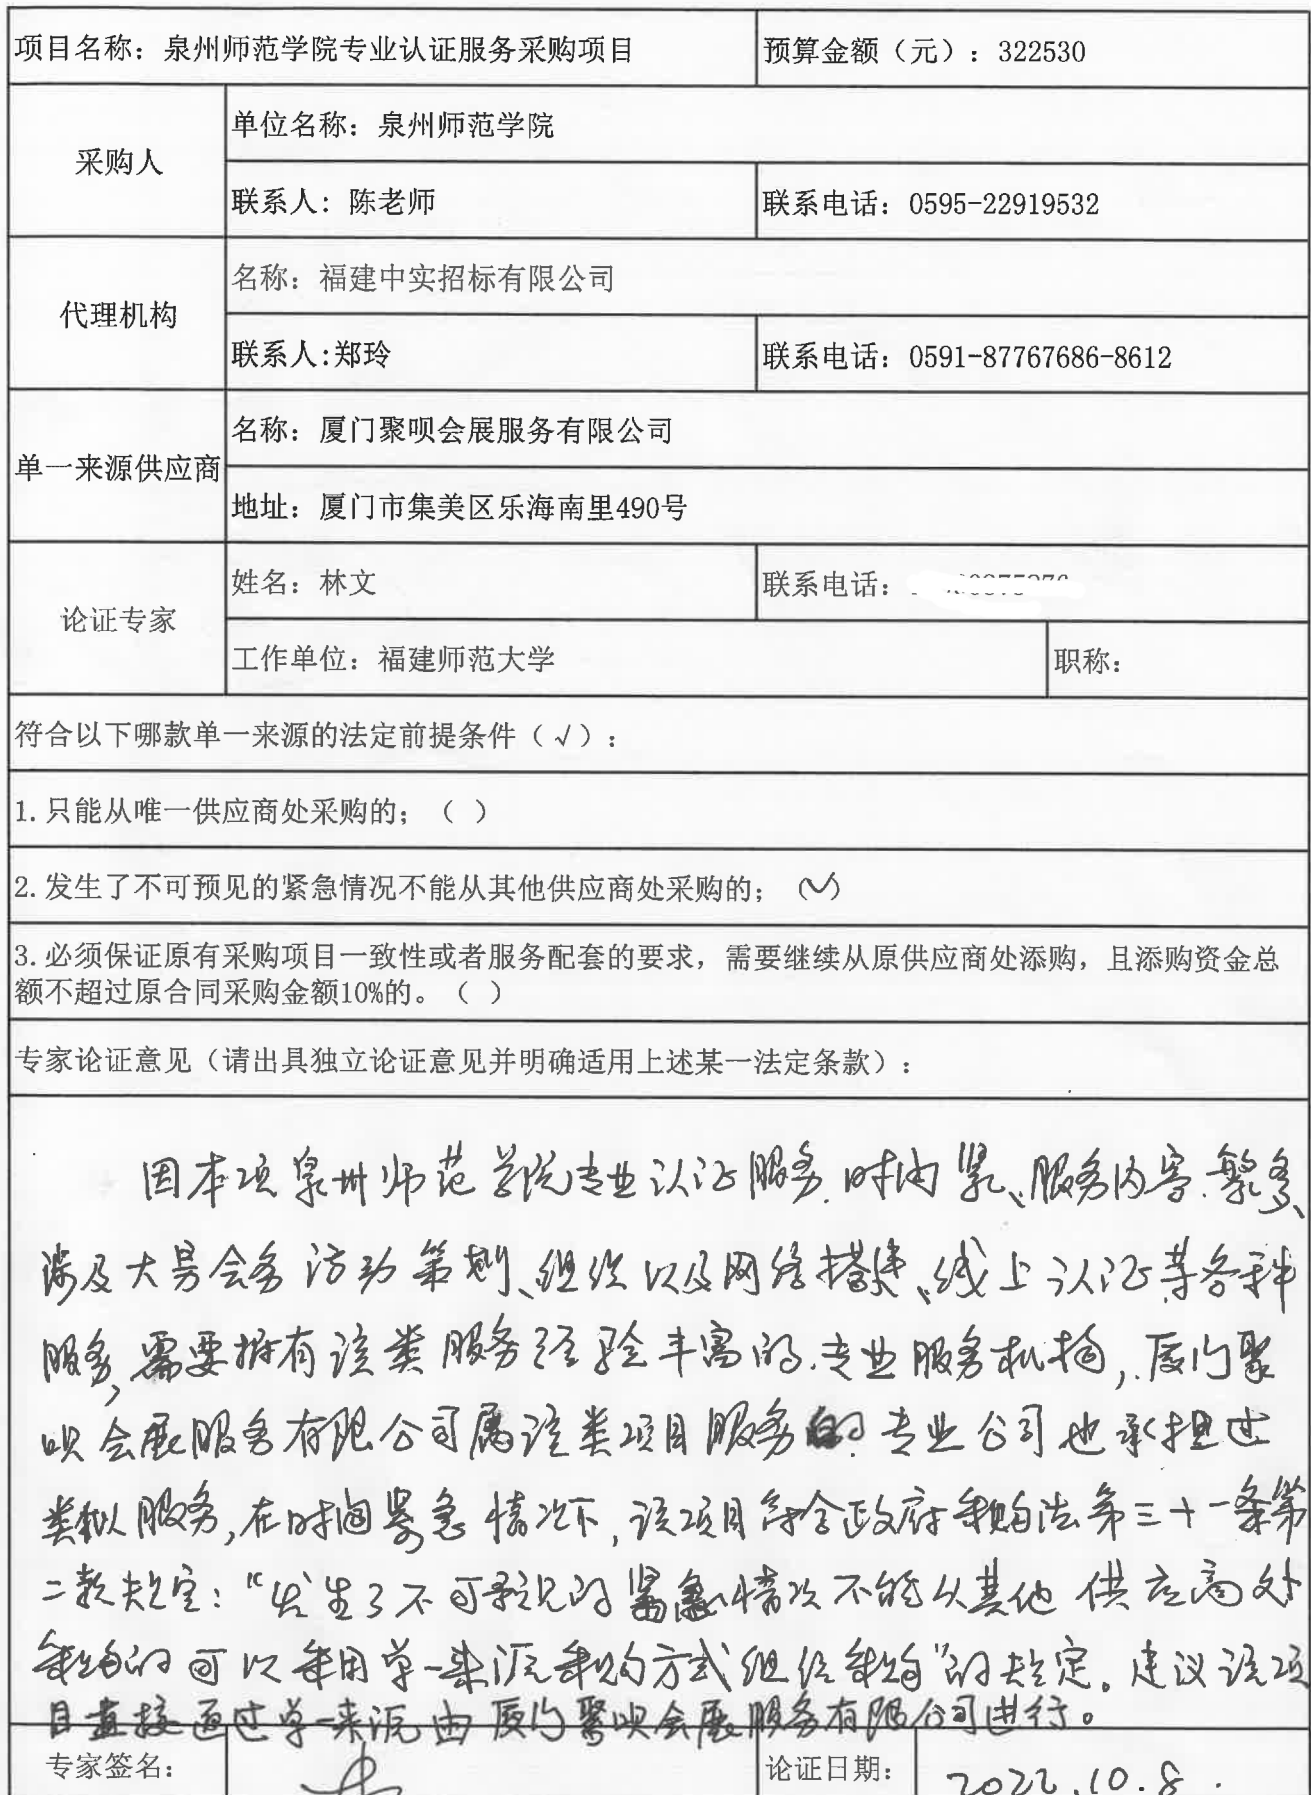 项目名称：泉州师范学院专业认证服务采购项目
预算金额（元）：322530
采购人
单位名称：泉州师范学院
联系人：陈老师
联系电话：0595-22919532
代理机构
名称：福建中实招标有限公司
联系人:郑玲
联系电话：0591-87767686-8612
单一来源供应商
名称：厦门聚呗会展服务有限公司
地址：厦门市集美区乐海南里490号
论证专家
姓名：林文
联系电话：
工作单位：福建师范大学
职称：
符合以下哪款单一来源的法定前提条件（√）：
1.只能从唯一供应商处采购的；（ ）
2.发生了不可预见的紧急情况不能从其他供应商处采购的；（✓）
3.必须保证原有采购项目一致性或者服务配套的要求，需要继续从原供应商处添购，且添购资金总
额不超过原合同采购金额10%的。（ ）
专家论证意见（请出具独立论证意见并明确适用上述某一法定条款）：
因本项泉州师范学院专业认证服务.时间紧、服务内容.繁多、
涉及大易会务活动策划、组织以及网络搭建、线上认证等各种
服务,需要拥有该类服务经验丰富的.专业服务机构,厦门聚
呗会展服务有限公司属该类项目服务的专业公司也承担过
类似服务,在时间紧急情况下,该项目符合政府采购法第三十一条第
二款规定："发生了不可预见的紧急情况不能从其他供应商处
采购的可以采用单一来源采购方式组织采购"的规定。建议该项
目直接通过单一来源由厦门聚呗会展服务有限公司进行。
专家签名：
论证日期：
2022.10.8.